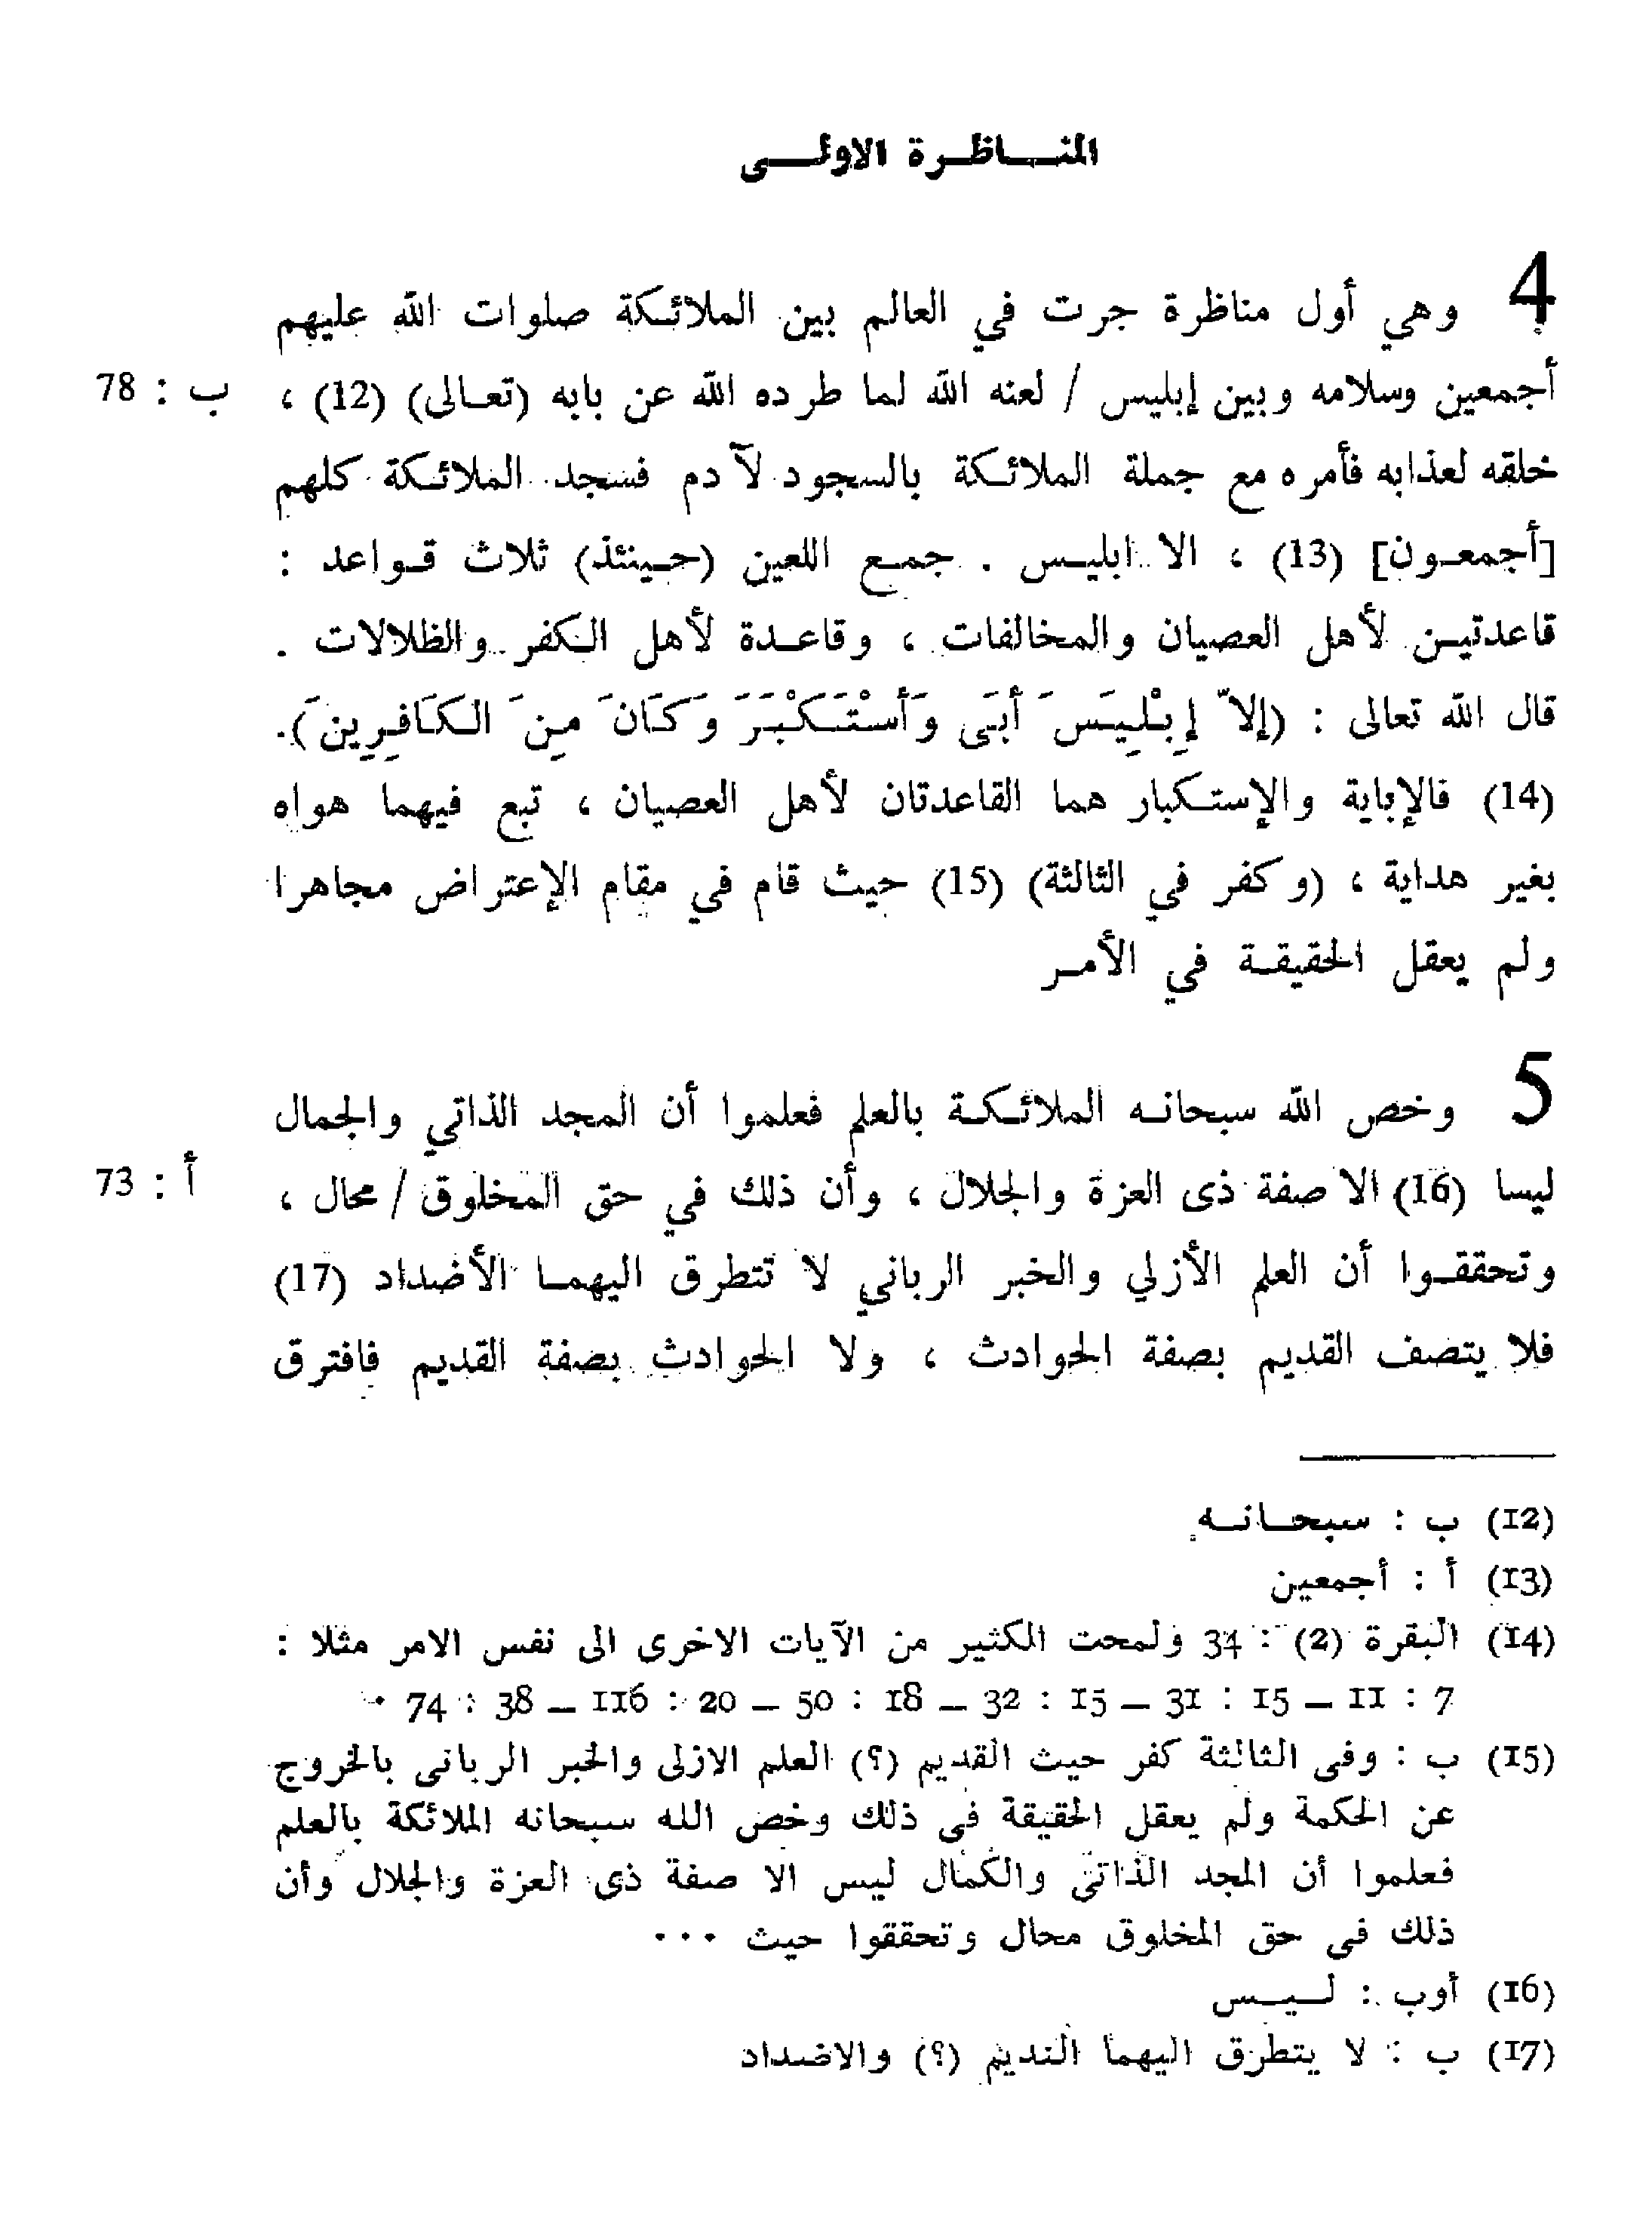 المناظرة الاولى
4 وهي أول مناظرة جرت في العالم بين الملائكة صلوات الله عليهم
أجمعين وسلامه وبين إبليس / لعنه الله لما طرده الله عن بابه (تعالى) (12) ، ب : 78
خلقه لعذابه فأمره مع جملة الملائكة بالسجود لآدم فسجد الملائكة كلهم
[أجمعون] (13) ، الا ابليس . جمع اللعين (حينئذ) ثلاث قواعد :
قاعدتين لأهل العصيان والمخالفات ، وقاعدة لأهل الكفر والظلالات .
قال الله تعالى : (إلاّ إِبْلِيسَ أَبَى وَأَسْتَكْبَرَ وَكَانَ مِنَ الكَافِرِينَ).
(14) فالإباية والإستكبار هما القاعدتان لأهل العصيان ، تبع فيهما هواه
بغير هداية ، (وكفر في الثالثة) (15) حيث قام في مقام الإعتراض مجاهرا
ولم يعقل الحقيقة في الأمر
5 وخص الله سبحانه الملائكة بالعلم فعلموا أن المجد الذاتي والجمال
ليسا (16) الا صفة ذى العزة والجلال ، وأن ذلك في حق المخلوق / محال ، أ : 73
وتحققوا أن العلم الأزلي والخبر الرباني لا تتطرق اليهما الأضداد (17)
فلا يتصف القديم بصفة الحوادث ، ولا الحوادث بصفة القديم فافترق
(12) ب : سبحانه
(13) أ : أجمعين
(14) البقرة (2) : 34 ولمحت الكثير من الآيات الاخرى الى نفس الامر مثلا :
7 : 11 – 15 : 31 – 15 : 32 – 18 : 50 – 20 : 116 – 38 : 74 .
(15) ب : وفى الثالثة كفر حيث القديم (؟) العلم الازلى والخبر الربانى بالخروج
عن الحكمة ولم يعقل الحقيقة فى ذلك وخص الله سبحانه الملائكة بالعلم
فعلموا أن المجد الذاتى والكمال ليس الا صفة ذى العزة والجلال وأن
ذلك فى حق المخلوق محال وتحققوا حيث ...
(16) أوب : ليس
(17) ب : لا يتطرق اليهما النديم (؟) والاضداد